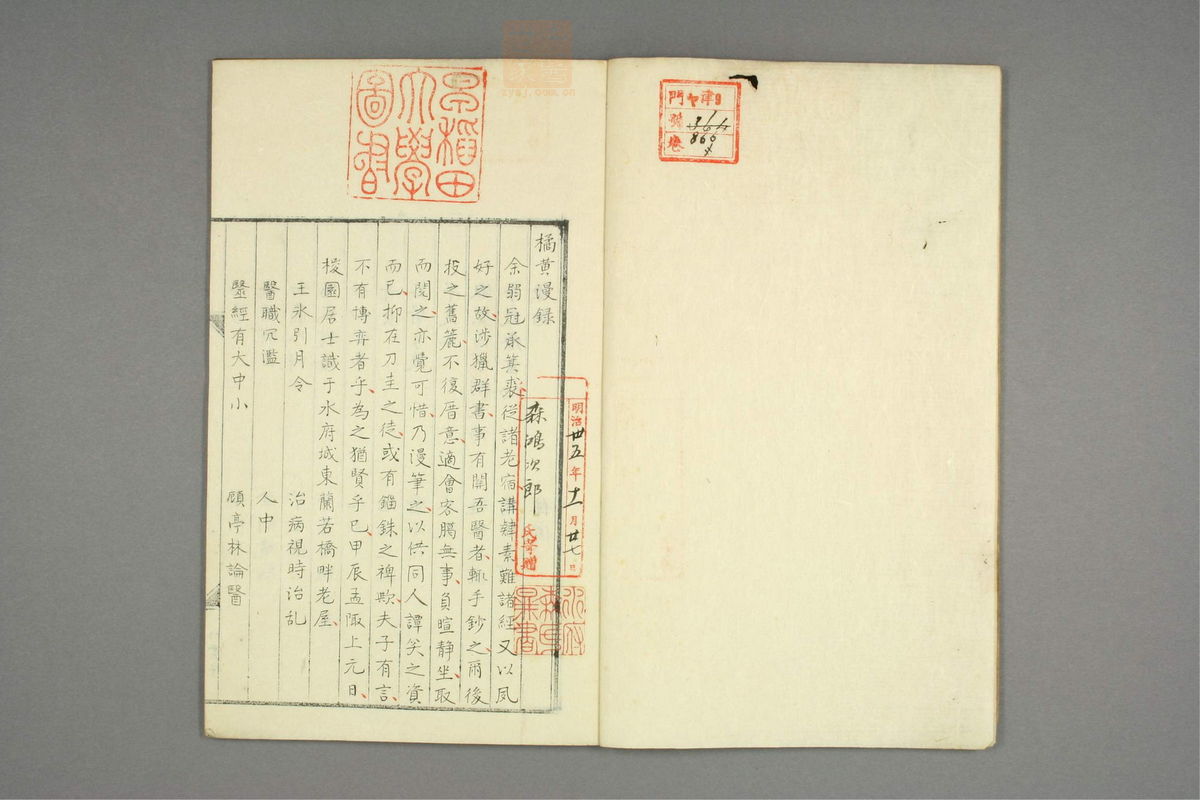 橘黄漫録
余弱冠承箕裘從諸老宿講肄素難諸經又以夙
好之故渉獵群書事有開吾醫者輒手鈔之爾後
投之舊簏不復厝意適會客腸無事負暄静坐取
而閲之亦覺可惜乃漫筆之以供同人譚笑之資
而已抑在刀圭之徒或有錙銖之裨歟夫子有言
不有博弈者乎為之猶賢乎已甲辰孟陬上元日
棭園居士識于水府城東蘭若橋畔老屋
王氷引月令 治病視時治乱
醫職冗濫 人中
毉經有大中小 顧亭林論醫
早稻田大學圖書
明治卅五年十一月廿七日
森鴻次郎氏寄贈
門ヤ9
號
卷
860
zysj.com.cn